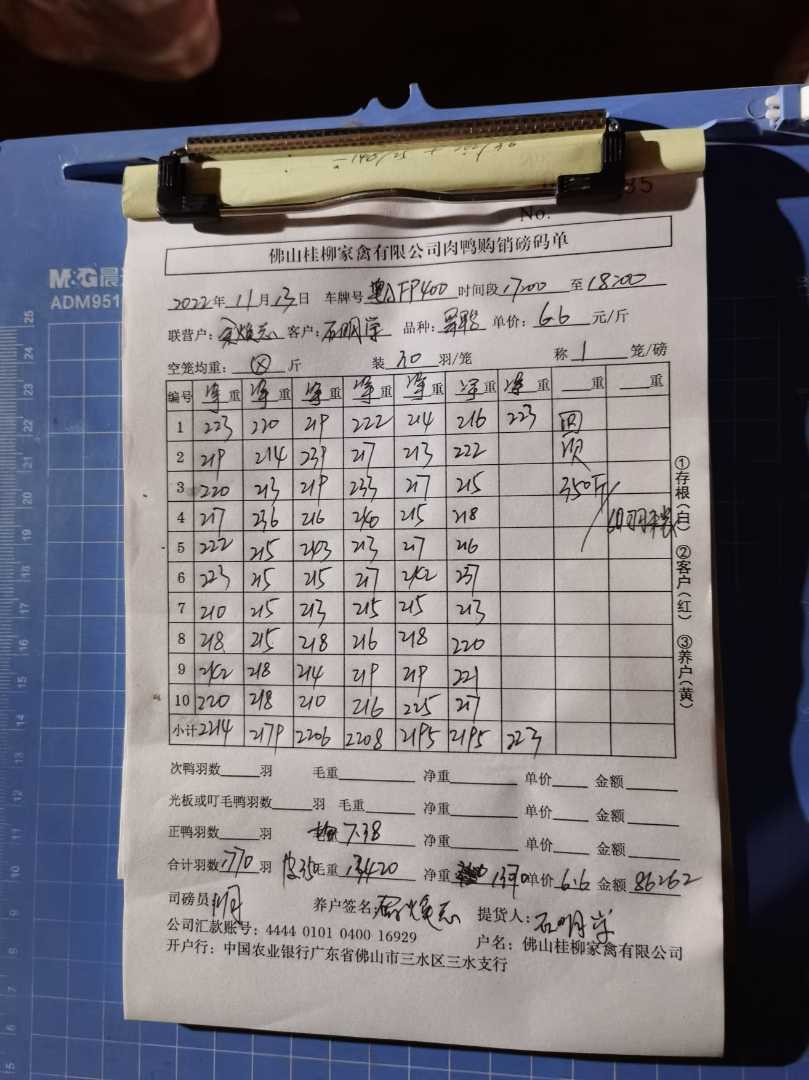 35
No.
佛山桂柳家禽有限公司肉鸭购销磅码单
M&G 晨
ADM951
2022年11月13日 车牌号 粤AFP400 时间段17:00 至18:00
联营户: 客户:石明学 品种: 单价:6.6 元/斤
空笼均重: 斤 装 30 羽/笼 称 1 笼/磅
编号 净重 净重 净重 净重 净重 净重 净重 重 重
1 223 220 219 222 214 216 223
2 219 214 239 217 213 222
3 220 213 219 233 217 215 350斤
4 217 236 216 240 215 218
5 222 215 203 213 217 216
6 223 215 215 217 242 237
7 210 215 213 215 215 213
8 218 215 218 216 218 220
9 242 218 214 219 219 221
10 220 218 210 216 225 217
小计 2214 2179 2206 2208 2195 2195 223
①存根(白) ②客户(红) ③养户(黄)
次鸭羽数 羽 毛重 净重 单价 金额
光板或叮毛鸭羽数 羽 毛重 净重 单价 金额
正鸭羽数 羽 7.38 净重 单价 金额
合计羽数1770羽 350毛重 13420 净重 单价 6.6 金额 86262
司磅员 养户签名: 提货人:石明学
公司汇款账号: 4444 0101 0400 16929 户名: 佛山桂柳家禽有限公司
开户行: 中国农业银行广东省佛山市三水区三水支行
25
24
23
22
21
20
19
18
17
16
15
14
13
12
11
10
9
8
7
6
5